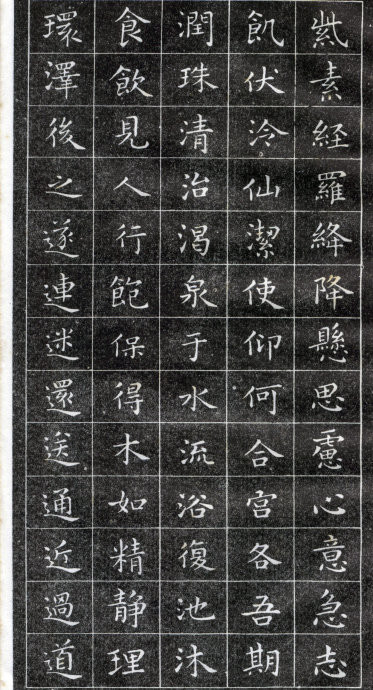 紫素經羅絳降懸思慮心意急志
飢伏泠仙潔使仰何合宮各吾期
潤珠清治渴泉于水流浴復池沐
食飲見人行飽保得木如精静理
環澤後之遂連迷還送通近過道